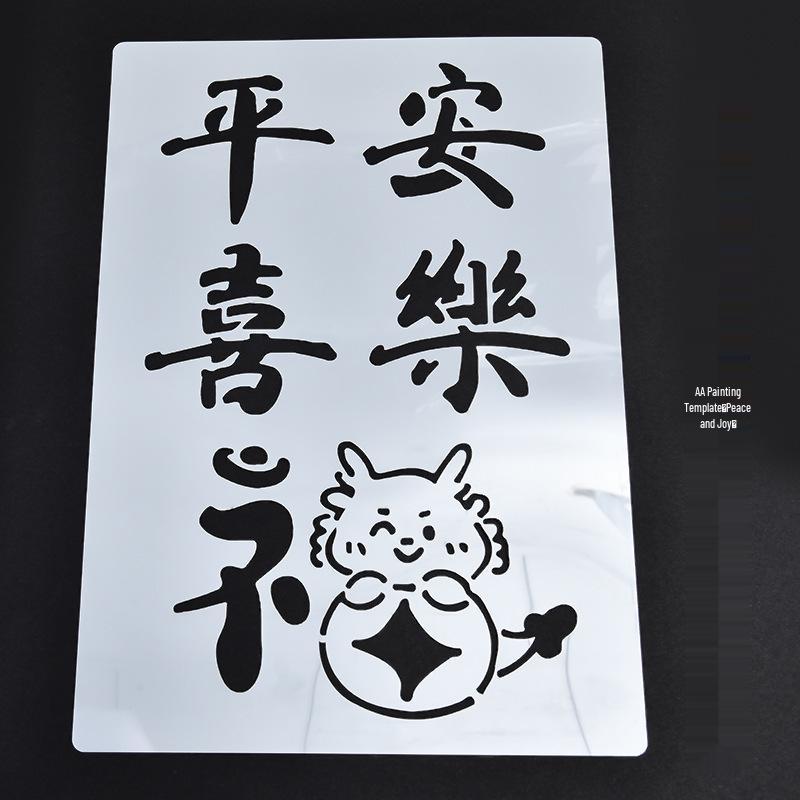 平安
喜樂
AA Painting
Template Peace
and Joy